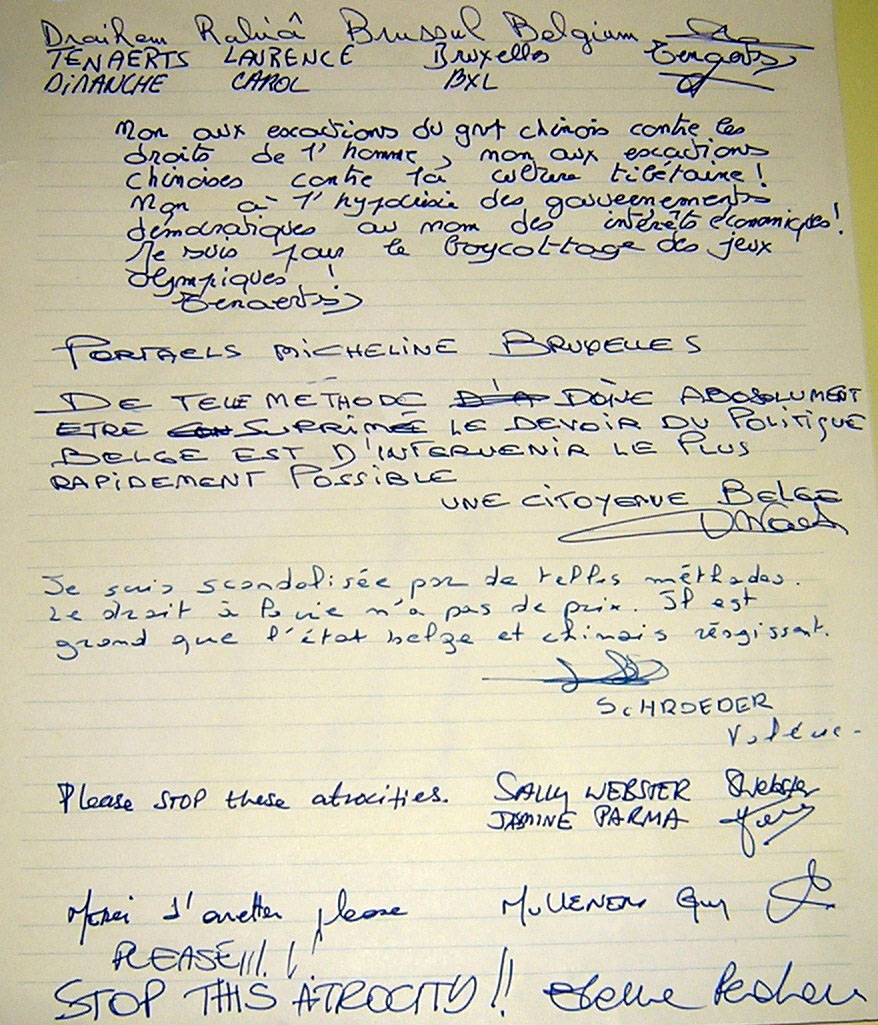 Draihem Rahiâ Brussul Belgium
TENAERTS LAURENCE Bruxelles Tenaerts
DIMANCHE CAROL BXL
Non aux exactions du gvt chinois contre les
droits de l'homme, non aux exactions
chinoises contre la culture tibétaine!
Non à l'hypocrisie des gouvernements
démocratiques au nom des intérêts économiques!
Je suis pour le boycottage des jeux
olympiques!
Tenaerts
PORTAELS MICHELINE BRUXELLES
DE TELLE METHODE DOIVE ABOSOLUMENT
ETRE SUPRIMÉ LE DEVOIR DU POLITIQUE
BELGE EST D'INTERVENIR LE PLUS
RAPIDEMENT POSSIBLE
UNE CITOYENNE BELGE
Je suis scandalisée par de telles méthodes.
Le droit à la vie n'a pas de prix. Il est
grand que l'état belge et chinois réagissent.
SCHROEDER
Valérie
Please STOP these atrocities. SALLY WEBSTER SWebster
JASMINE PARMA
Merci d'arretter please MULLENERS Guy
PLEASE!!!!
STOP THIS ATROCITY!!